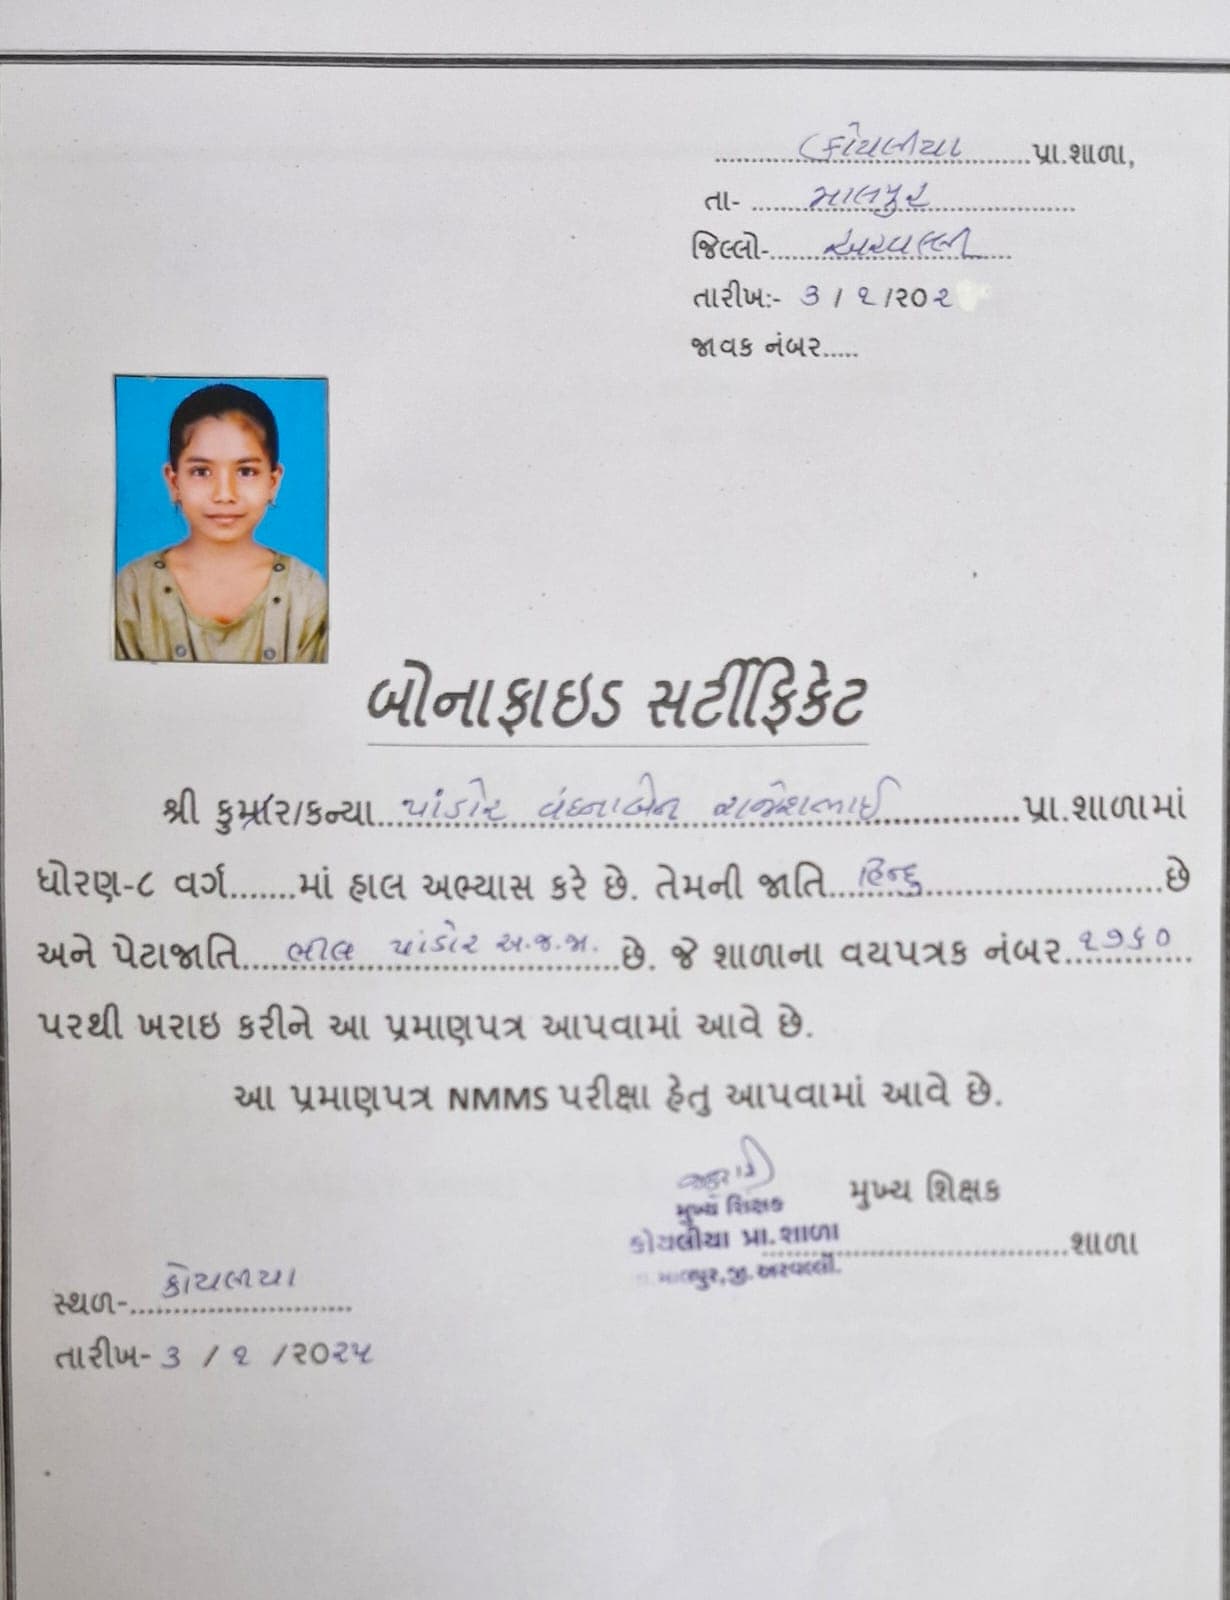 કોયલીયા પ્રા.શાળા,
તા- માલપુર
જિલ્લો- અરવલ્લી
તારીખ:- ૩ / ૧ /૨૦૨
જાવક નંબર.....
બોનાફાઇડ સર્ટીફિકેટ
શ્રી કુમાર/કન્યા પાંડોર વંદનાબેન રાજેશભાઈ પ્રા.શાળામાં
ધોરણ-૮ વર્ગ.......માં હાલ અભ્યાસ કરે છે. તેમની જાતિ હિન્દુ છે
અને પેટાજાતિ ભીલ પાંડોર અ.જ.જા. છે. જે શાળાના વયપત્રક નંબર ૧૭૬૦
પરથી ખરાઇ કરીને આ પ્રમાણપત્ર આપવામાં આવે છે.
આ પ્રમાણપત્ર NMMS પરીક્ષા હેતુ આપવામાં આવે છે.
મુખ્ય શિક્ષક
મુખ્ય શિક્ષક
કોયલીયા પ્રા. શાળા
શાળા
માલપુર, જી. અરવલ્લી.
સ્થળ- કોયલીયા
તારીખ- ૩ / ૧ /૨૦૨૫